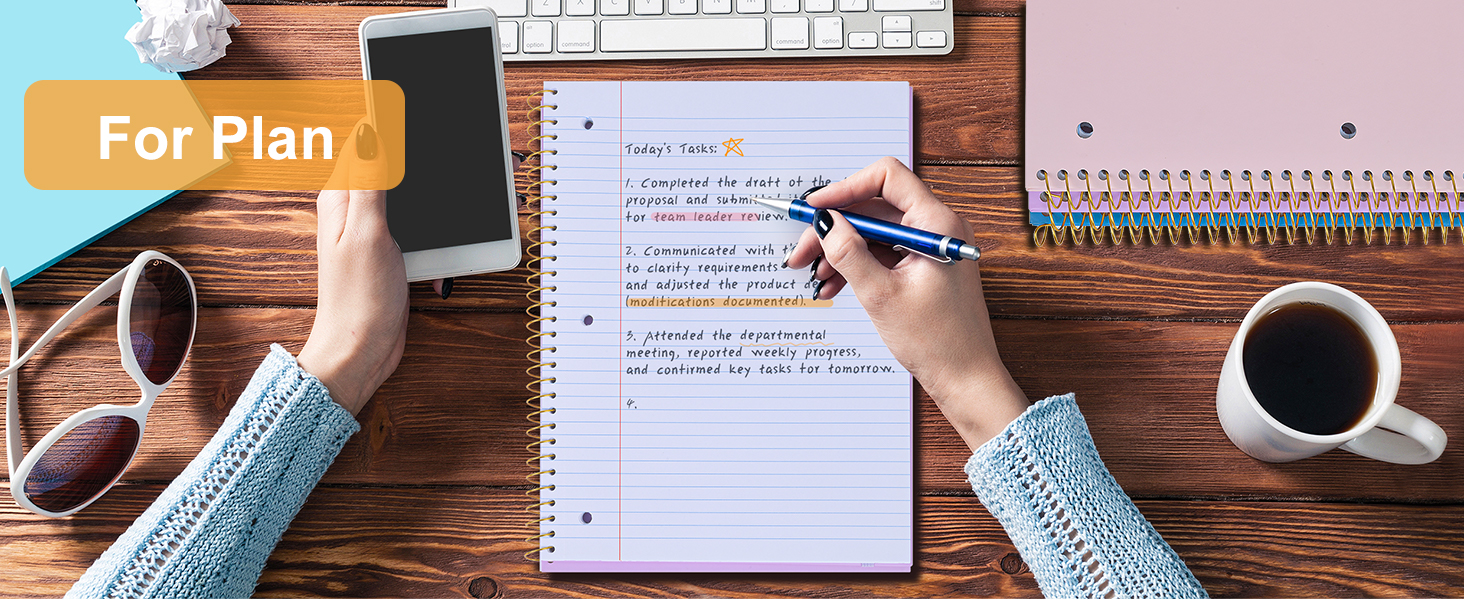 Z X C V B N M
shift
option command command option
For Plan
Today's Tasks:
1. Completed the draft of the
proposal and submitted
for team leader review.
2. Communicated with
to clarify requirements
and adjusted the product
(modifications documented).
3. Attended the departmental
meeting, reported weekly progress,
and confirmed key tasks for tomorrow.
4.